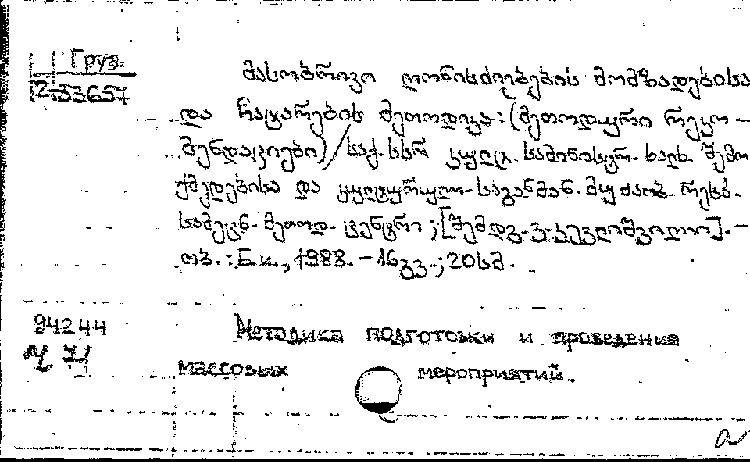 Груз.
2-33657
მასობრივი ღონისძიებების მომზადებისა
და ჩატარების მეთოდიკა: (მეთოდური რეკო-
მენდაციები) / საქ. სსრ კულტ. სამინისტრო. ხალხ. შემო
ქმედებისა და კულტურულ-საგანმან. მუშაობ. რესპ.
სამეცნ. მეთოდ. ცენტრი; [შემდგ. ვ. კევლიშვილი]. -
თბ. : Б.и., 1988. - 16 გვ.; 20 სმ.
94244
Методика подготовки и проведения
массовых мероприятий.